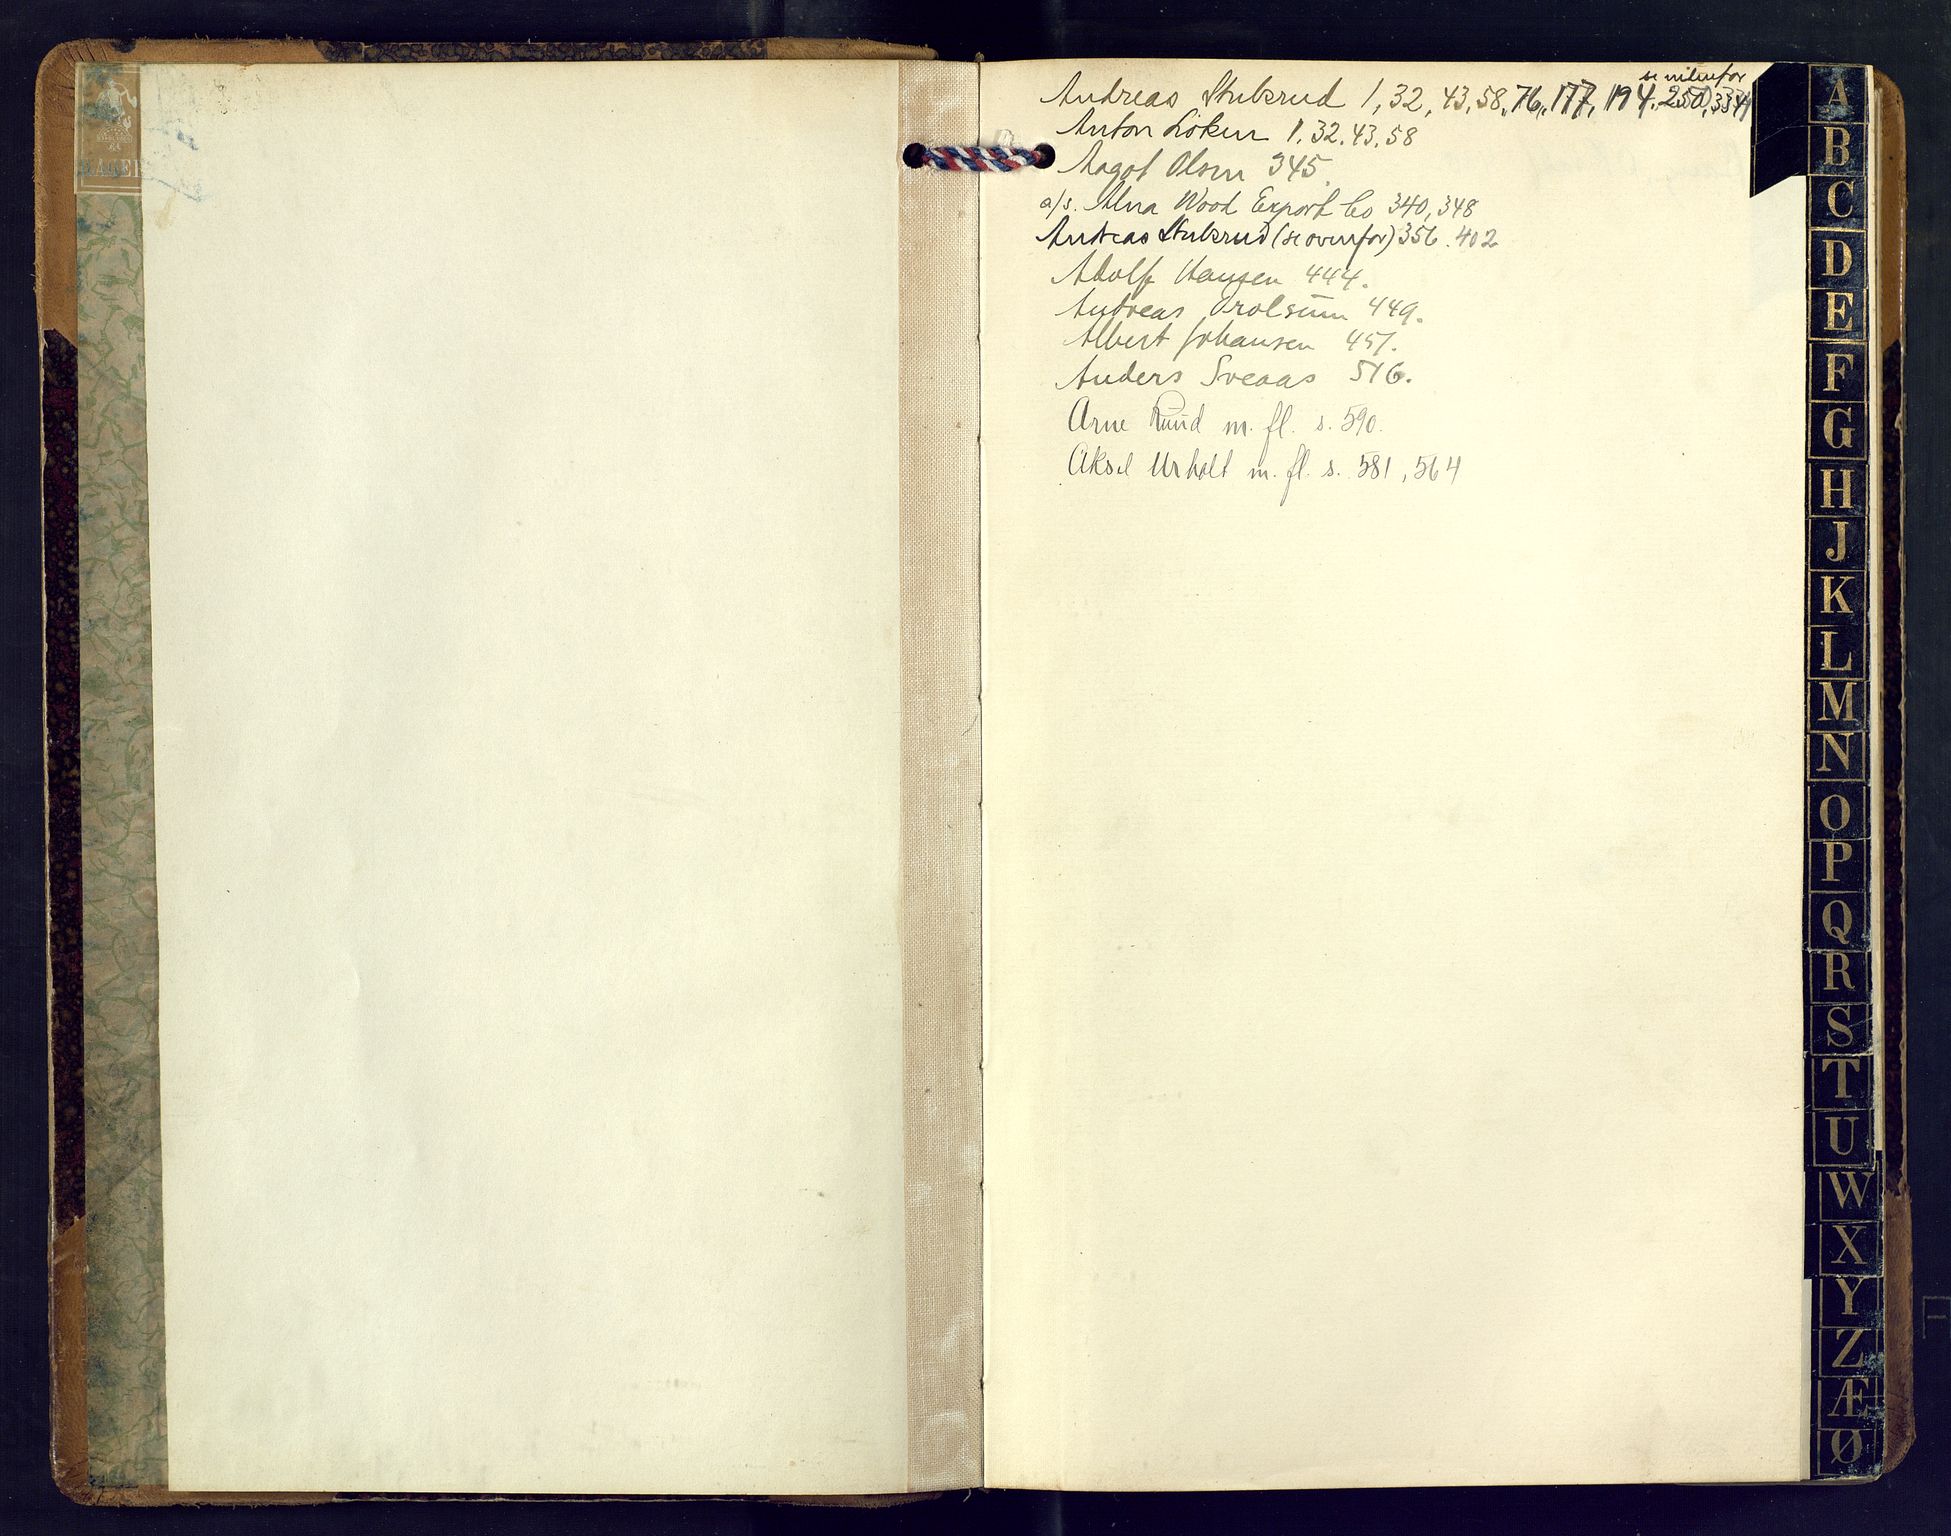 se nedenfor
Andreas Stubsrud 1, 32, 43, 58, 76, 117, 194, 250, 334
Anton Löken 1. 32. 43. 58
Aagot Olsen 345
a/s. Alna Wood Export Co 340, 348
Andreas Stubsrud (se ovenfor) 356. 402
Adolf Hansen 444.
Andreas 449.
Albert Johansen 457.
Anders Sveaas 516.
Arne Ruud m. fl. s. 590.
Aksel Urholt m. fl. s. 581, 564
A
B
C
D
E
F
G
H
J
K
L
M
N
O
P
Q
R
S
T
U
W
X
Y
Z
Æ
Ø